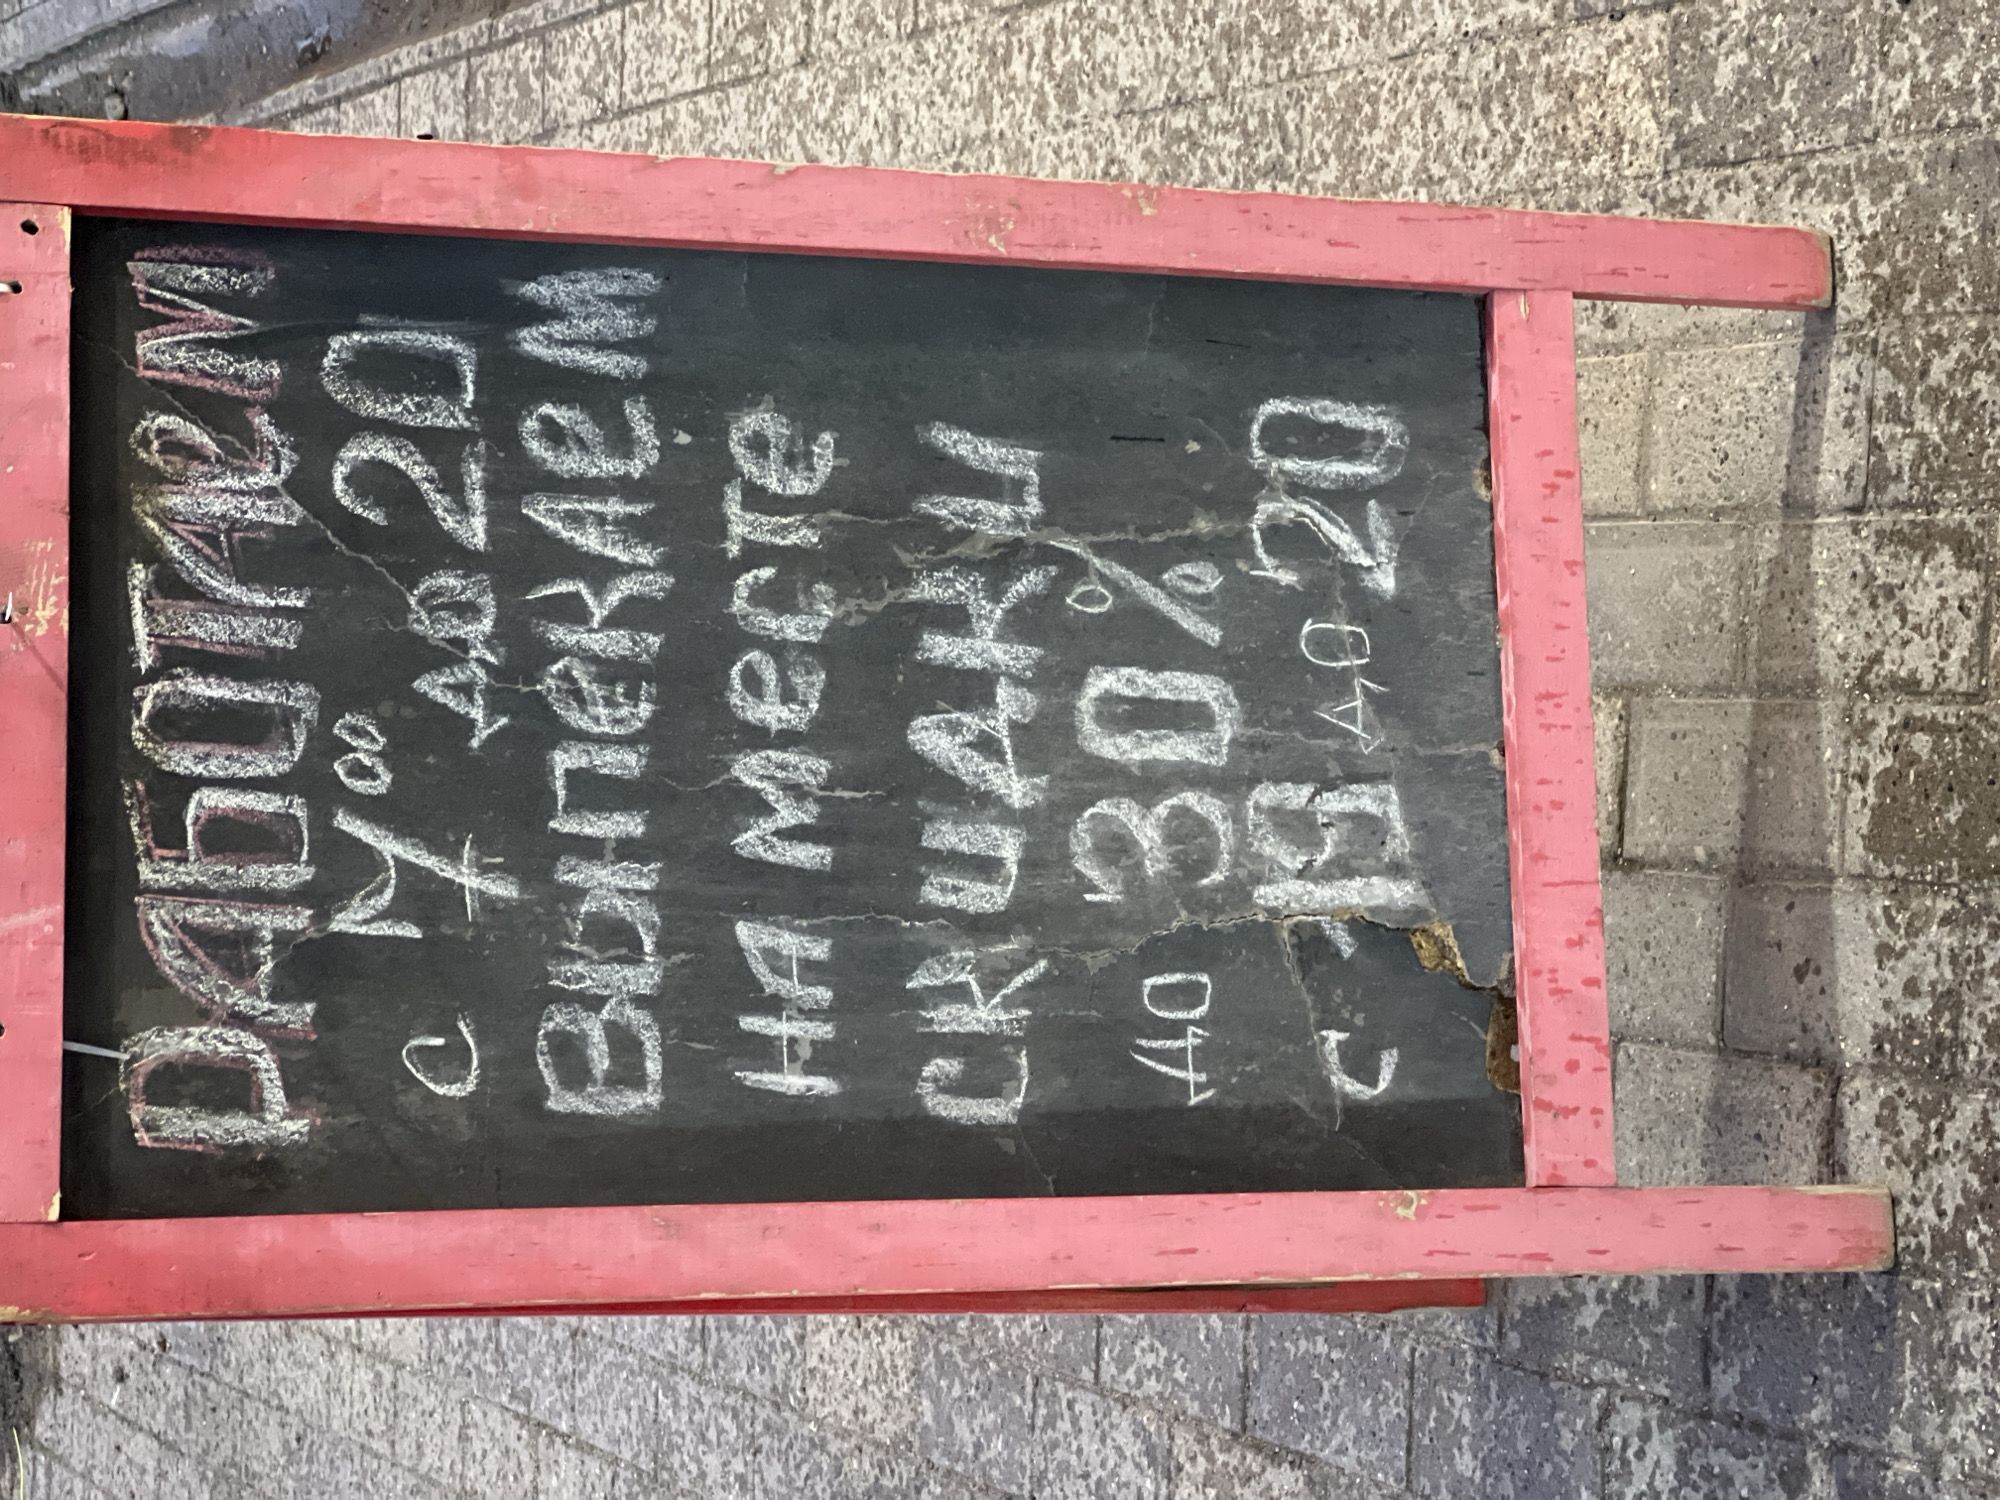 РАБОТАЕМ
С 7⁰⁰ ДО 20
ВЫПЕКАЕМ
НА МЕСТЕ
СКИДКИ
ДО 30%
С 19 ДО 20